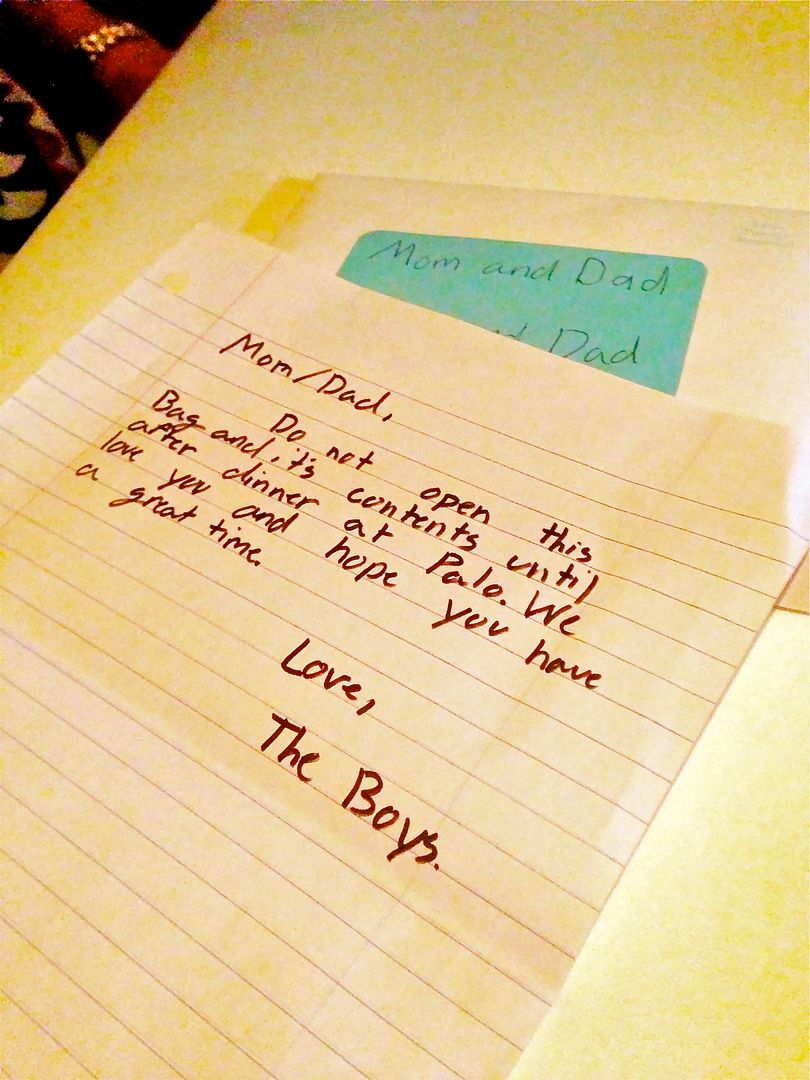 Mom and Dad
Dad
Mom/Dad,
Do not open this
Bag and it's contents until
after dinner at Palo. We
love you and hope you have
a great time.
Love,
The Boys.